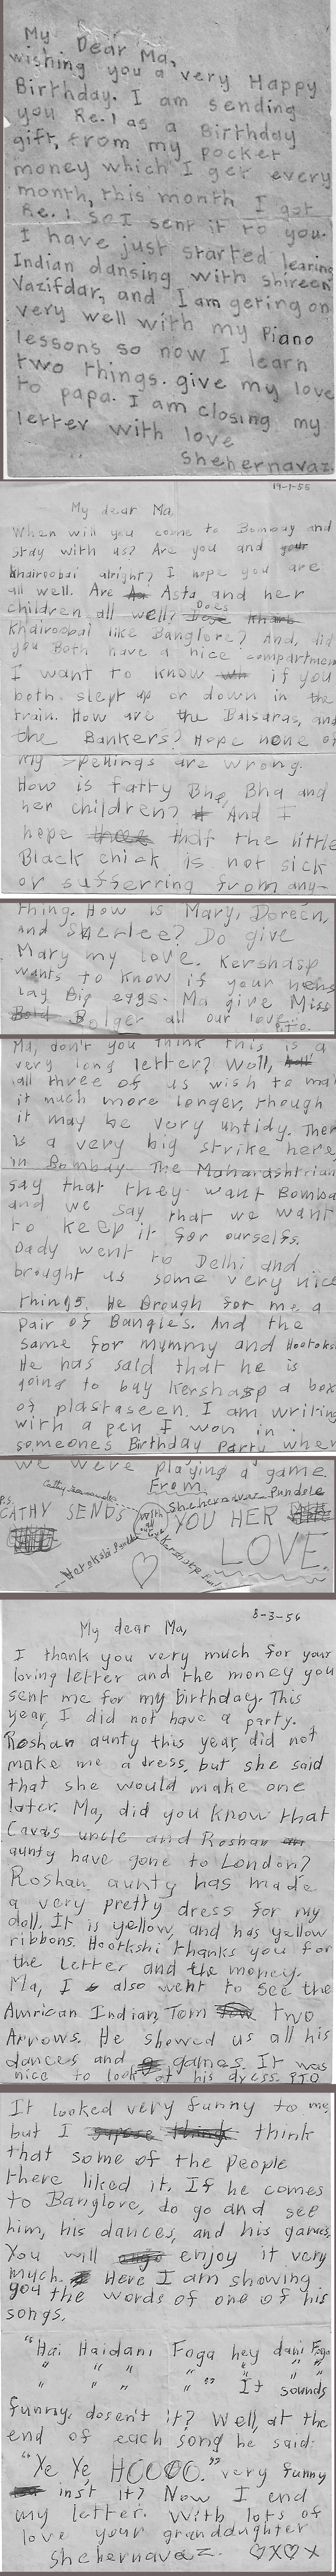 My Dear Ma,
wishing you a very Happy
Birthday. I am sending
you Re.1 as a Birthday
gift, from my pocket
money which I get every
month, this month I got
Re.1 so I sent it to you.
I have just started learing
Indian dansing with Shireen
Vazifdar, and I am geting on
very well with my Piano
lessons so now I learn
two things. give my love
to papa. I am closing my
letter with love
Shehernavaz.
19-1-55
My dear Ma,
When will you come to Bombay and
stay with us? Are you and your
Khairoobai alright? I hope you are
all well. Are Asta and her
children all well? Does
Khairoobai like Banglore? And, did
you Both have a nice compartmen
I want to know if you
both slept up or down in the
train. How are the Balsaras, and
the Bankers? Hope none of
my spellings are wrong.
How is fatty Bha Bha and
her children? And I
hope that the little
Black chick is not sick
or sufferring from any-
thing. How is Mary, Doreen,
and Sherlee? Do give
Mary my love. Kershasp
wants to know if your hens
lay Big eggs. Ma give Miss
Bolger all our love.
P.T.O.
Ma, don't you think this is a
very long letter? Well,
all three of us wish to ma
it much more longer, though
it may be very untidy. Ther
is a very big strike here,
in Bombay. The Maharashtrian
say that they want Bomba
and we say that we want
to keep it for ourselfs.
Dady went to Delhi and
brought us some very nice
things. He Brough for me a
pair of Bangles. And the
same for mummy and Hootoks
He has said that he is
going to buy Kershasp a box
of plastaseen. I am writing
with a pen I won in
someones Birthday Party wher
we were playing a game.
From
Shehernavaz Pundole
P.S.
CATHY SENDS YOU HER
with all love
LOVE.
8-3-56
My dear Ma,
I thank you very much for your
loving letter and the money you
sent me for my birthday. This
year, I did not have a party.
Roshan aunty this year, did not
make me a dress, but she said
that she would make one
later. Ma, did you know that
Cavas uncle and Roshan
aunty have gone to London?
Roshan aunty has made
a very pretty dress for my
doll. It is yellow, and has yellow
ribbons. Hootkshi thanks you for
the letter and the money.
Ma, I also went to see the
Amrican Indian, Tom two
Arrows. He showed us all his
dances and games. It was
nice to look at his dress. PTO
It looked very funny to me,
but I think
that some of the People
there liked it. If he comes
to Banglore, do go and see
him, his dances, and his games.
You will enjoy it very
much. Here I am showing
you the words of one of his
songs.
"Hai Haidani Foga hey dani Foga
" " " " " "
" " " " " It sounds
funny, dosen't it? Well, at the
end of each song he said:
"Ye Ye, HOOOO." very funny
inst it? Now I end
my letter. With lots of
love your granddaughter
Shehernavaz. ♡X♡X